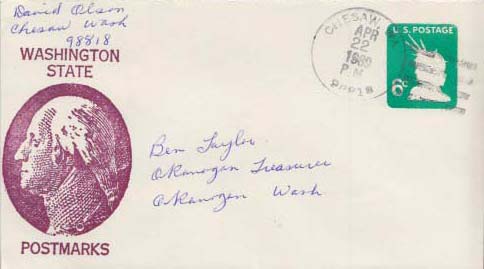 David Olson
Chesaw Wash
98818
WASHINGTON
STATE
POSTMARKS
CHESAW
APR
22
P.M.
U.S. POSTAGE
6c
Ben Taylor
Okanogan Treasurer
Okanogan Wash